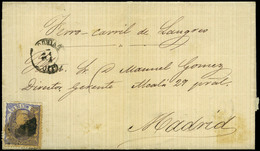 Ferro-carril de Langreo
Sr. D. Manuel Gomez
Director Gerente Alcalá 29 pral.
Madrid